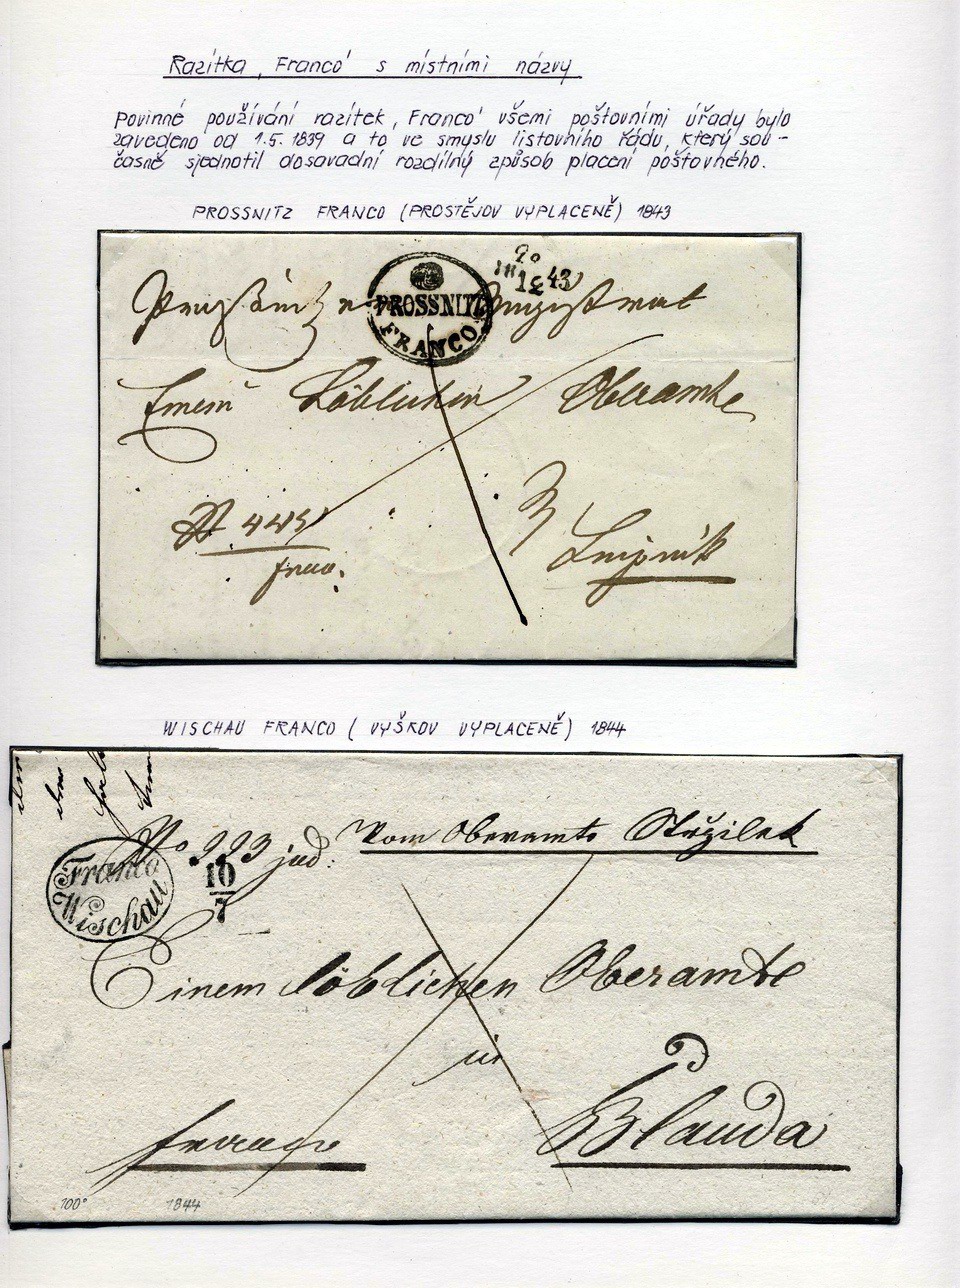 Razítka ‚Franco' s místními názvy
Povinné používání razítek ‚Franco' všemi poštovními úřady bylo
zavedeno od 1.5. 1839 a to ve smyslu listovního řádu, který sou-
časně sjednotil dosavadní rozdílný způsob placení poštovného.
PROSSNITZ FRANCO (PROSTĚJOV VYPLACENĚ) 1843
PROSSNITZ
FRANCO
43
Magistrat
Löblichen Oberamte
Leipnik
WISCHAU FRANCO (VYŠKOV VYPLACENĚ) 1844
No 993 jud: Vom Oberamte
Franco
Wischau
10
7
Einem löblichen Oberamte
in
Blauda
franco
100° 1844